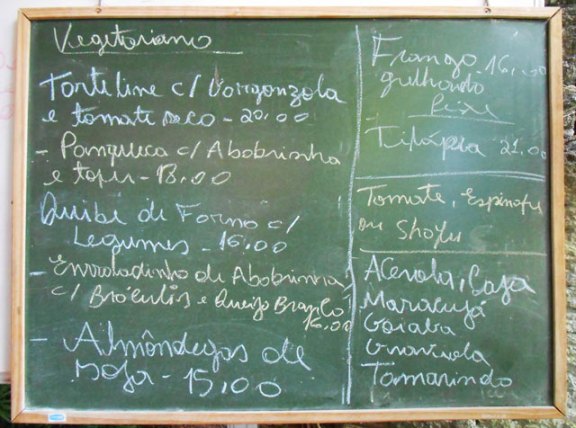 Vegetariano
Torteline c/ Gorgonzola
e tomate seco - 20,00
- Panqueca c/ Abobrinha
e tofu - 13,00
Quibe de Forno c/
Legumes - 16,00
- Enroladinho de Abobrinha
c/ Brócolis e Queijo Branco
16,00
- Almôndegas de
soja - 15,00
Frango 16,00
grelhado
Peixe
Tilápia 21,00
Tomate, Espinafre
ou Shoyu
Acerola, Cajá
Maracujá
Goiaba
Graviola
Tamarindo